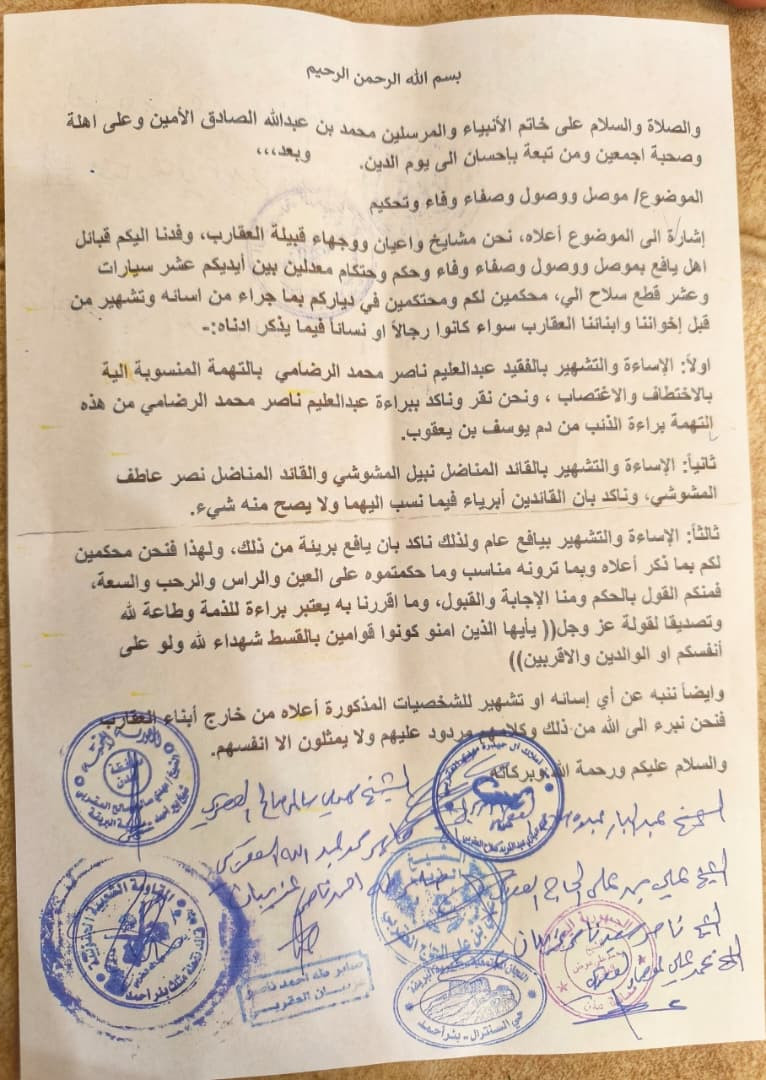 بسم الله الرحمن الرحيم
والصلاة والسلام على خاتم الأنبياء والمرسلين محمد بن عبدالله الصادق الأمين وعلى اهلة
وصحبة اجمعين ومن تبعة بإحسان الى يوم الدين. وبعد،،،
الموضوع/ موصل ووصول وصفاء وفاء وتحكيم
إشارة الى الموضوع أعلاه، نحن مشايخ واعيان ووجهاء قبيلة العقارب، وفدنا اليكم قبائل
اهل يافع بموصل ووصول وصفاء وفاء وحكم وحتكام معدلين بين أيديكم عشر سيارات
وعشر قطع سلاح الي، محكمين لكم ومحتكمين في دياركم بما جراء من اسائه وتشهير من
قبل إخواننا وابنائنا العقارب سواء كانوا رجالاً او نسائاً فيما يذكر ادناه:-
اولاً: الإساءة والتشهير بالفقيد عبدالعليم ناصر محمد الرضامي بالتهمة المنسوبة الية
بالاختطاف والاغتصاب ، ونحن نقر وناكد ببراءة عبدالعليم ناصر محمد الرضامي من هذه
التهمة براءة الذئب من دم يوسف بن يعقوب.
ثانياً: الإساءة والتشهير بالقائد المناضل نبيل المشوشي والقائد المناضل نصر عاطف
المشوشي، وناكد بان القائدين أبرياء فيما نسب اليهما ولا يصح منه شيء.
ثالثاً: الإساءة والتشهير بيافع عام ولذلك ناكد بان يافع بريئة من ذلك، ولهذا فنحن محكمين
لكم بما ذكر أعلاه وبما ترونه مناسب وما حكمتموه على العين والراس والرحب والسعة،
فمنكم القول بالحكم ومنا الإجابة والقبول، وما اقررنا به يعتبر براءة للذمة وطاعة لله
وتصديقا لقولة عز وجل(( يأيها الذين امنو كونوا قوامين بالقسط شهداء لله ولو على
أنفسكم او الوالدين والاقربين))
وايضاً ننبه عن أي إسائه او تشهير للشخصيات المذكورة أعلاه من خارج أبناء العقارب
فنحن نبرء الى الله من ذلك وكلامهم مردود عليهم ولا يمثلون الا انفسهم.
والسلام عليكم ورحمة الله وبركاته
الشيخ مهدي سالم صالح العقربي
الشيخ عبدالجبار
محمد عبدالله العقربي
الشيخ علي بن علي الحاج العقربي
الشيخ ناصر سعد ناصر
الشيخ محمد علي
المقاومة الشعبية الجنوبية
الشيخ
بن علي الحاج العقربي
صابر طه احمد ناصر
عريسان العقربي
حي السنترال - بئر احمد